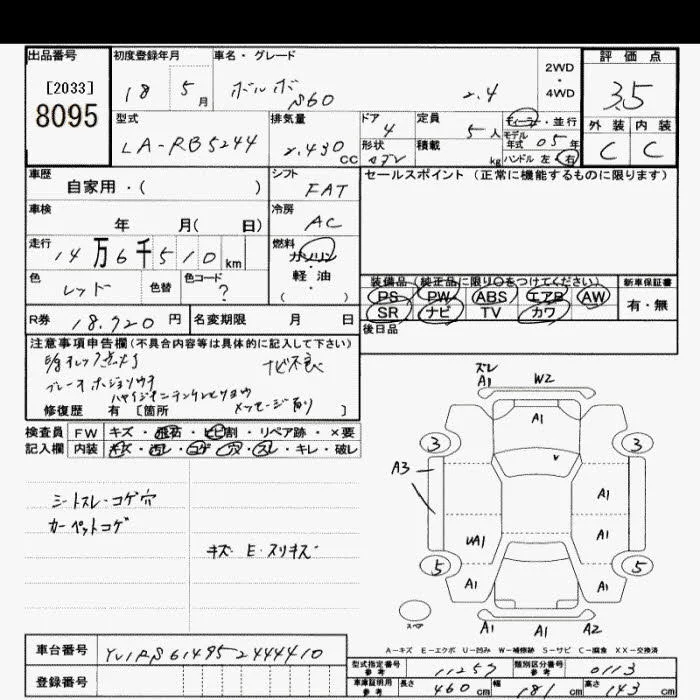 出品番号 初度登録年月 車名・グレード 2WD・4WD 評価点
[2033]
8095
18 5月 ボルボ S60 2.4 3.5
型式 排気量 ドア 定員 ディーラー・並行 外装 内装
LA-RB5244 2.430 CC 4 5人 モデル年式 05年 C C
形状 積載 kg ハンドル 左・右
車歴 シフト セールスポイント (正常に機能するものに限ります)
自家用・( ) FAT
車検 冷房
年 月( 日) AC
走行 燃料
14万6千510km ガソリン・軽油
( )
色 色替 色コード 装備品 (純正品に限り○をつけてください) 新車保証書
レッド ? PS PW ABS エアB AW 有・無
SR ナビ TV カワ
R券 18.920円 名変期限 月 日 後日品
注意事項申告欄(不具合内容等は具体的に記入して下さい)
ナビ不良
メッセージ有り
修復歴 有 [箇所 ]
検査員 FW キズ・飛石・ヒビ割・リペア跡・×要
記入欄 内装 キズ・汚レ・コゲ・穴・スレ・キレ・破レ
シートスレ・コゲ穴
カーペットコゲ
キズ E・スリキズ
ズレ
A1 W2
A1
3 3
A3
A1
UA1 A1
5 5
A1 A1
スペア
A1 A2 A1
A-キズ E-エクボ U-凹み W-補修跡 S-サビ C-腐食 XX-交換済
車台番号 YV1RS614952444410
登録番号
型式指定番号 参考 11257 類別区分番号 参考 0113
車庫証明用 参考 長さ 460cm 幅 181cm 高さ 143cm